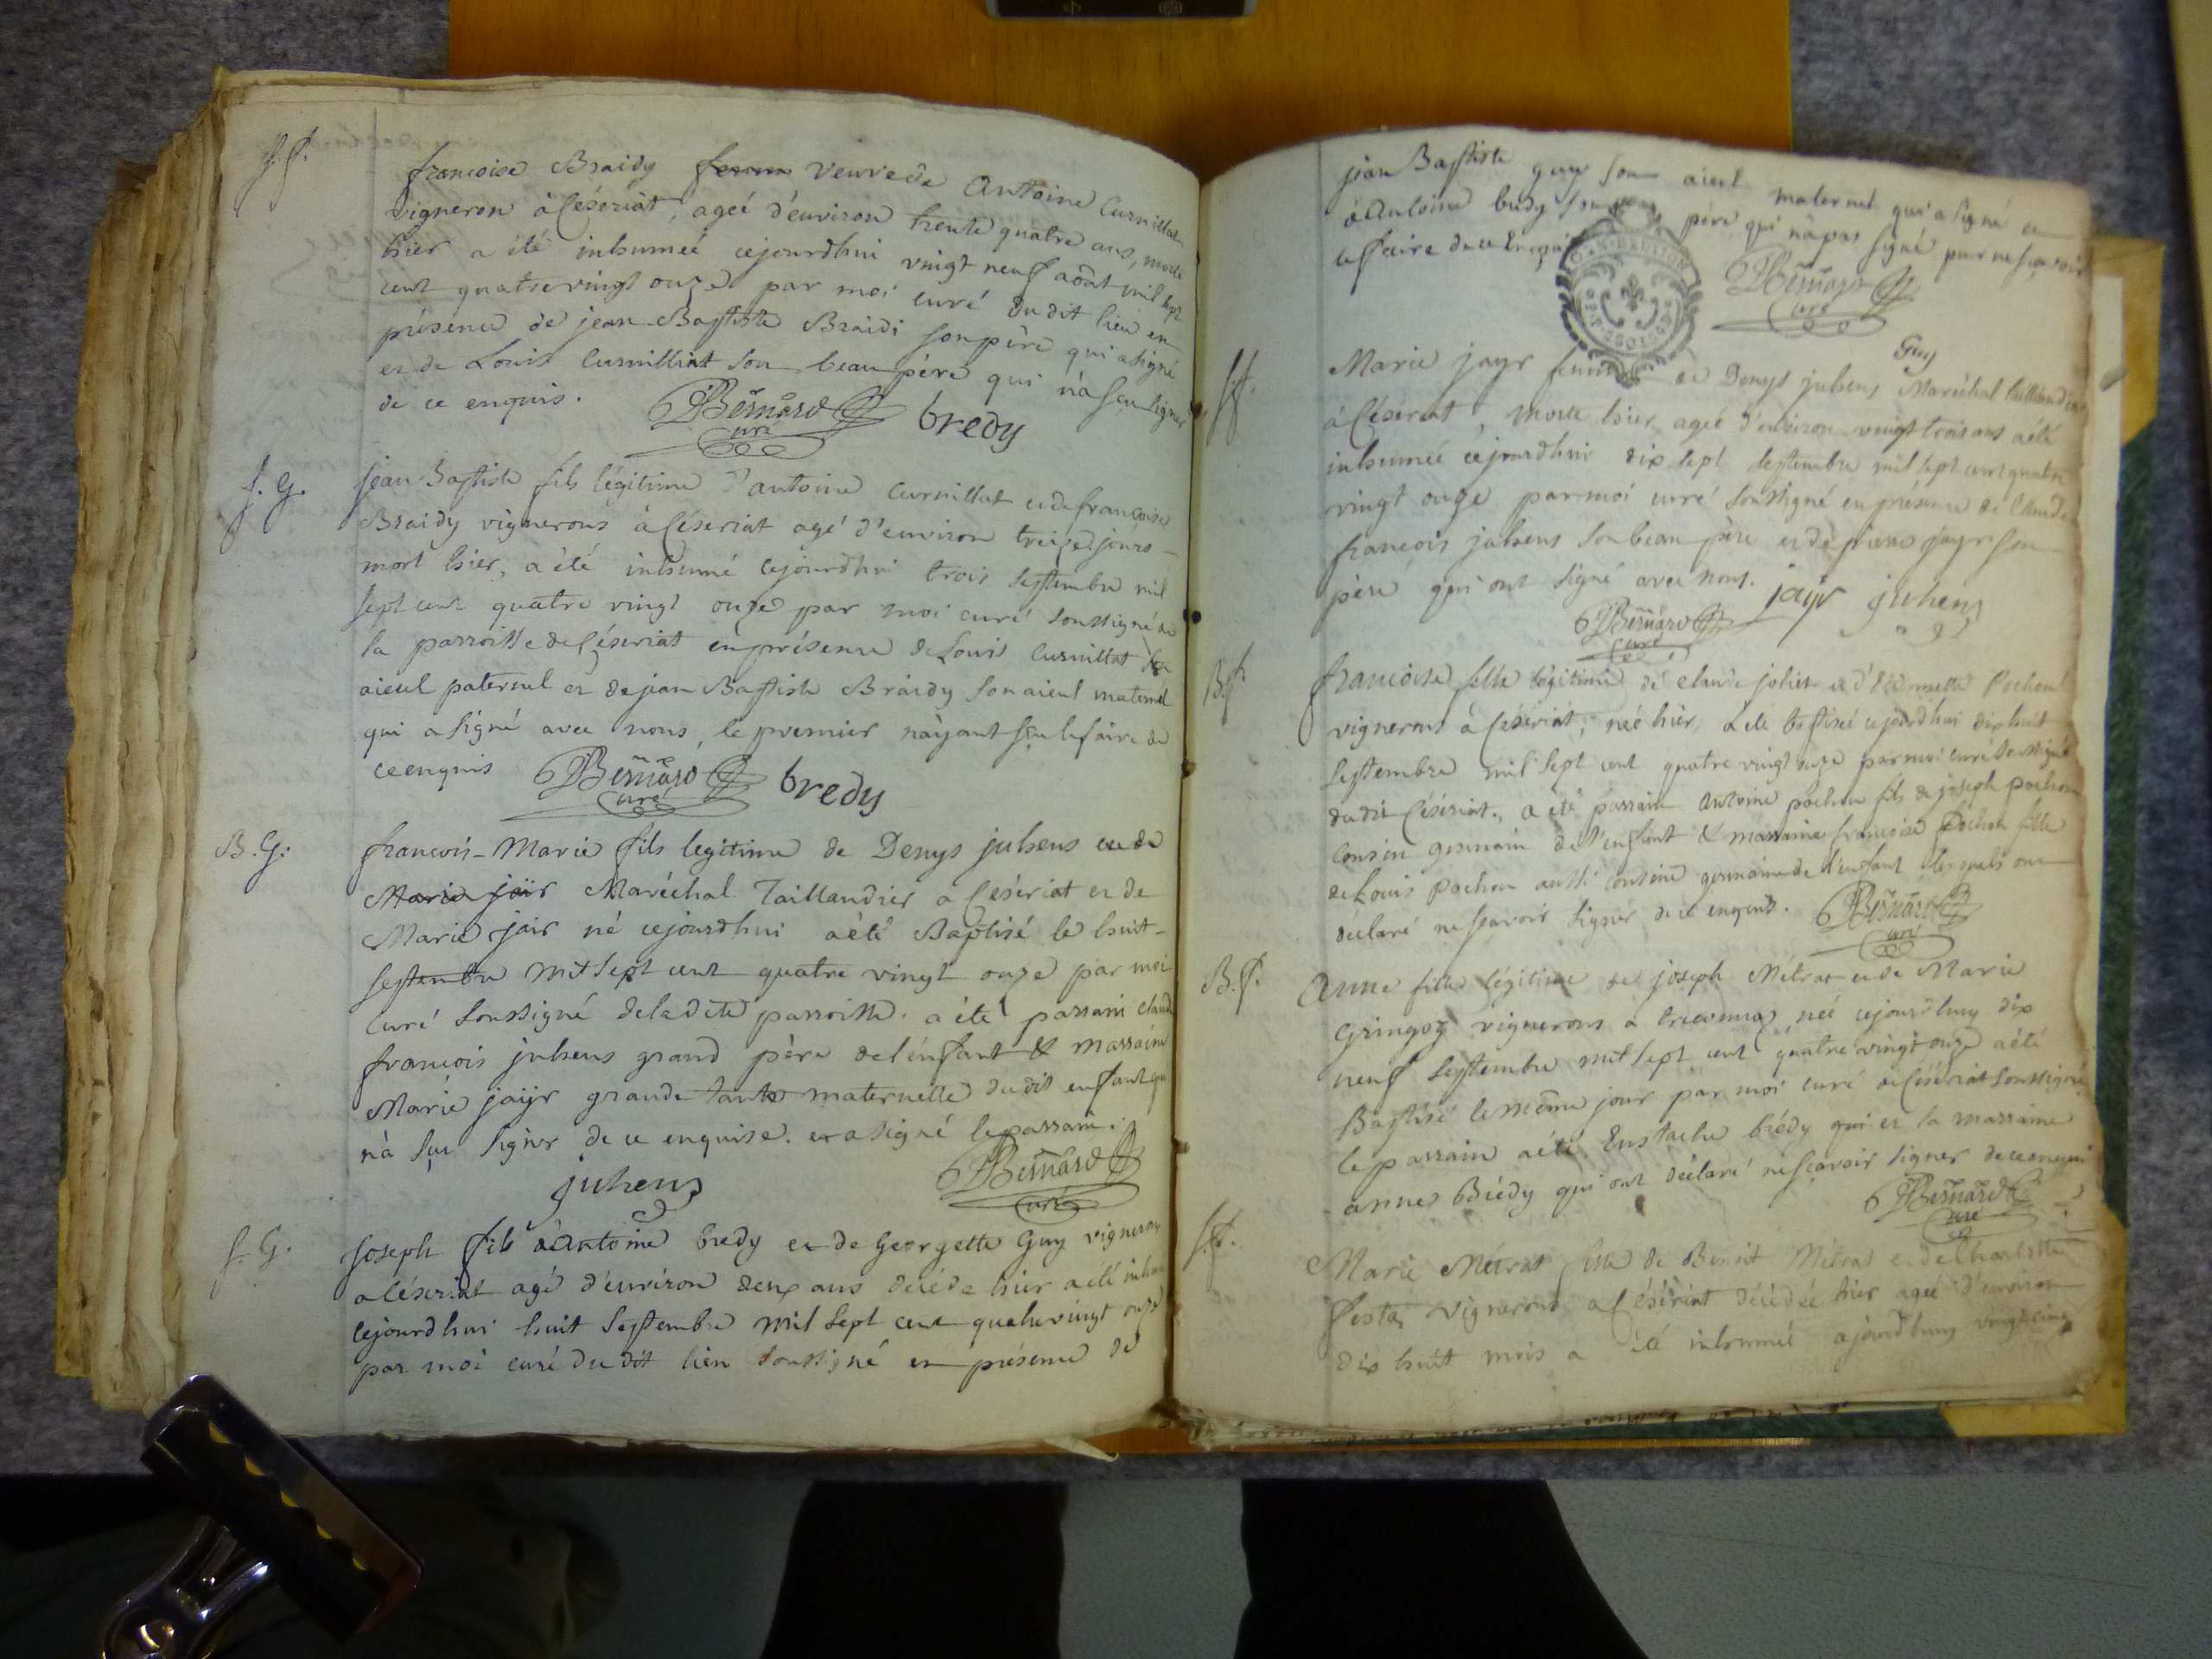 f.f.
françoise Braidy femme veuve de Antoine Curnillat
vigneron à Céseriat, ageé d'environ trente quatre ans, morte
hier a été inhumeé cejourdhui vingt neuf août mil sept
cent quatre vingt onze par moi curé du dit lieu en
présence de jean-Baptiste Braidi son père qui a signé
et de Louis Curnilliat son beau père qui n'a sçu signer
de ce enquis.
Bernard
curé
bredy
f. G.
jean-Baptiste fils légitime d'antoine Curnillat et de françoise
Braidy vignerons à Céseriat agé d'environ treize jours
mort hier, a été inhumé cejourdhui trois septembre mil
sept cent quatre vingt onze par moi curé soussigné de
la parroisse de Céseriat en présence de Louis Curnillat son
aieul paternel et de jean Baptiste Braidy son aieul maternel
qui a signé avec nous, le premier n'ayant sçu le faire de
ce enquis
Bernard
curé
bredy
B. G:
françois-Marie fils legitime de Denys juhens et de
Marie jaïr Maréchal Taillandier a Céseriat et de
Marie jair né cejourdhui a été Baptisé le huit
septembre mil sept cent quatre vingt onze par moi
curé soussigné de ladite parroisse. a été parrain claude
françois juhens grand père de l'enfant & marraine
Marie jaÿr grande tante maternelle du dit enfant qui
n'a sçu signer de ce enquise. et a signé le parrain.
juhens
Bernard
curé
f. G.
joseph fils d'Antoine bredy et de Georgette Guy vignerons
a Céseriat agé d'environ deux ans décédé hier a été inhumé
cejourdhui huit septembre mil sept cent quatre vingt onze
par moi curé du dit lieu soussigné en présence de
jean Baptiste guy son aieul maternel qui a signé et
d'Antoine bredy son père qui n'a pas signé pour ne sçavoir
le faire de ce enquis
Bernard
curé
Guy
f.f.
Marie jayr femme de Denys juhens Maréchal taillandier
à Céseriat, morte hier, ageé d'environ vingt trois ans a été
inhumeé cejourdhui dix sept septembre mil sept cent quatre
vingt onze par moi curé soussigné en présence de Claude
françois juhens son beau père et de pierre jayr son
père qui ont signé avec nous.
jayr juhens
Bernard
curé
B.f
françoise fille légitime de claude joliet et d' Pochon
vignerons à Céseriat, neé hier, a été baptiseé cejourdhui dix huit
septembre mil sept cent quatre vingt onze par moi curé soussigné
du dit Céseriat, a été parrain Antoine pochon fils de joseph pochon
cousin germain de l'enfant & marraine françoise Pochon fille
de Louis pochon aussi cousine germaine de l'enfant lesquels ont
déclaré ne sçavoir signer de ce enquis.
Bernard
curé
B. f.
Anne fille légitime de joseph Métrat et de Marie
Gringoz vignerons a treconnas neé cejourdhuy dix
neuf septembre mil sept cent quatre vingt onze a été
Baptisé le même jour par moi curé de Céseriat soussigné
le parrain a été Eustache brédy qui et la marraine
anne Brédy qui ont déclaré ne sçavoir signer de ce enquis
Bernard
curé
f.f.
Marie Métrat fille de Benoit Métrat et de Charlotte
festa vignerons a Céseriat décédeé hier ageé d'environ
dix huit mois a été inhumeé cejourdhuy vingt cinq